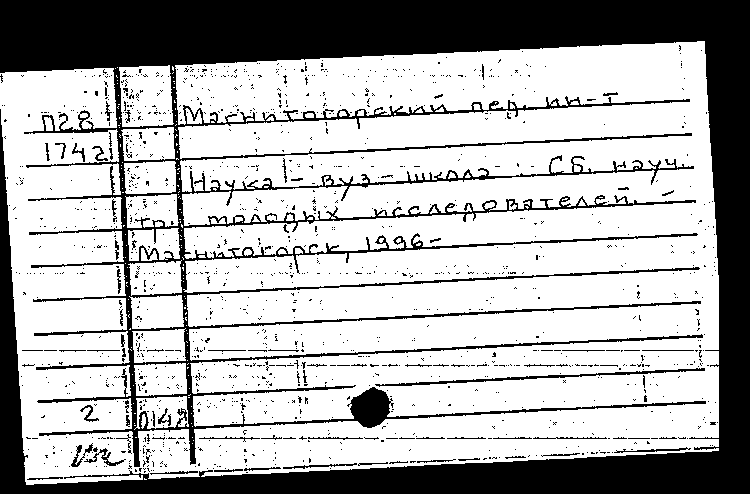 П28 Магнитогорский пед. ин-т
1742
Наука - вуз - школа : Сб. науч.
тр. молодых исследователей. -
Магнитогорск, 1996-
2 0147